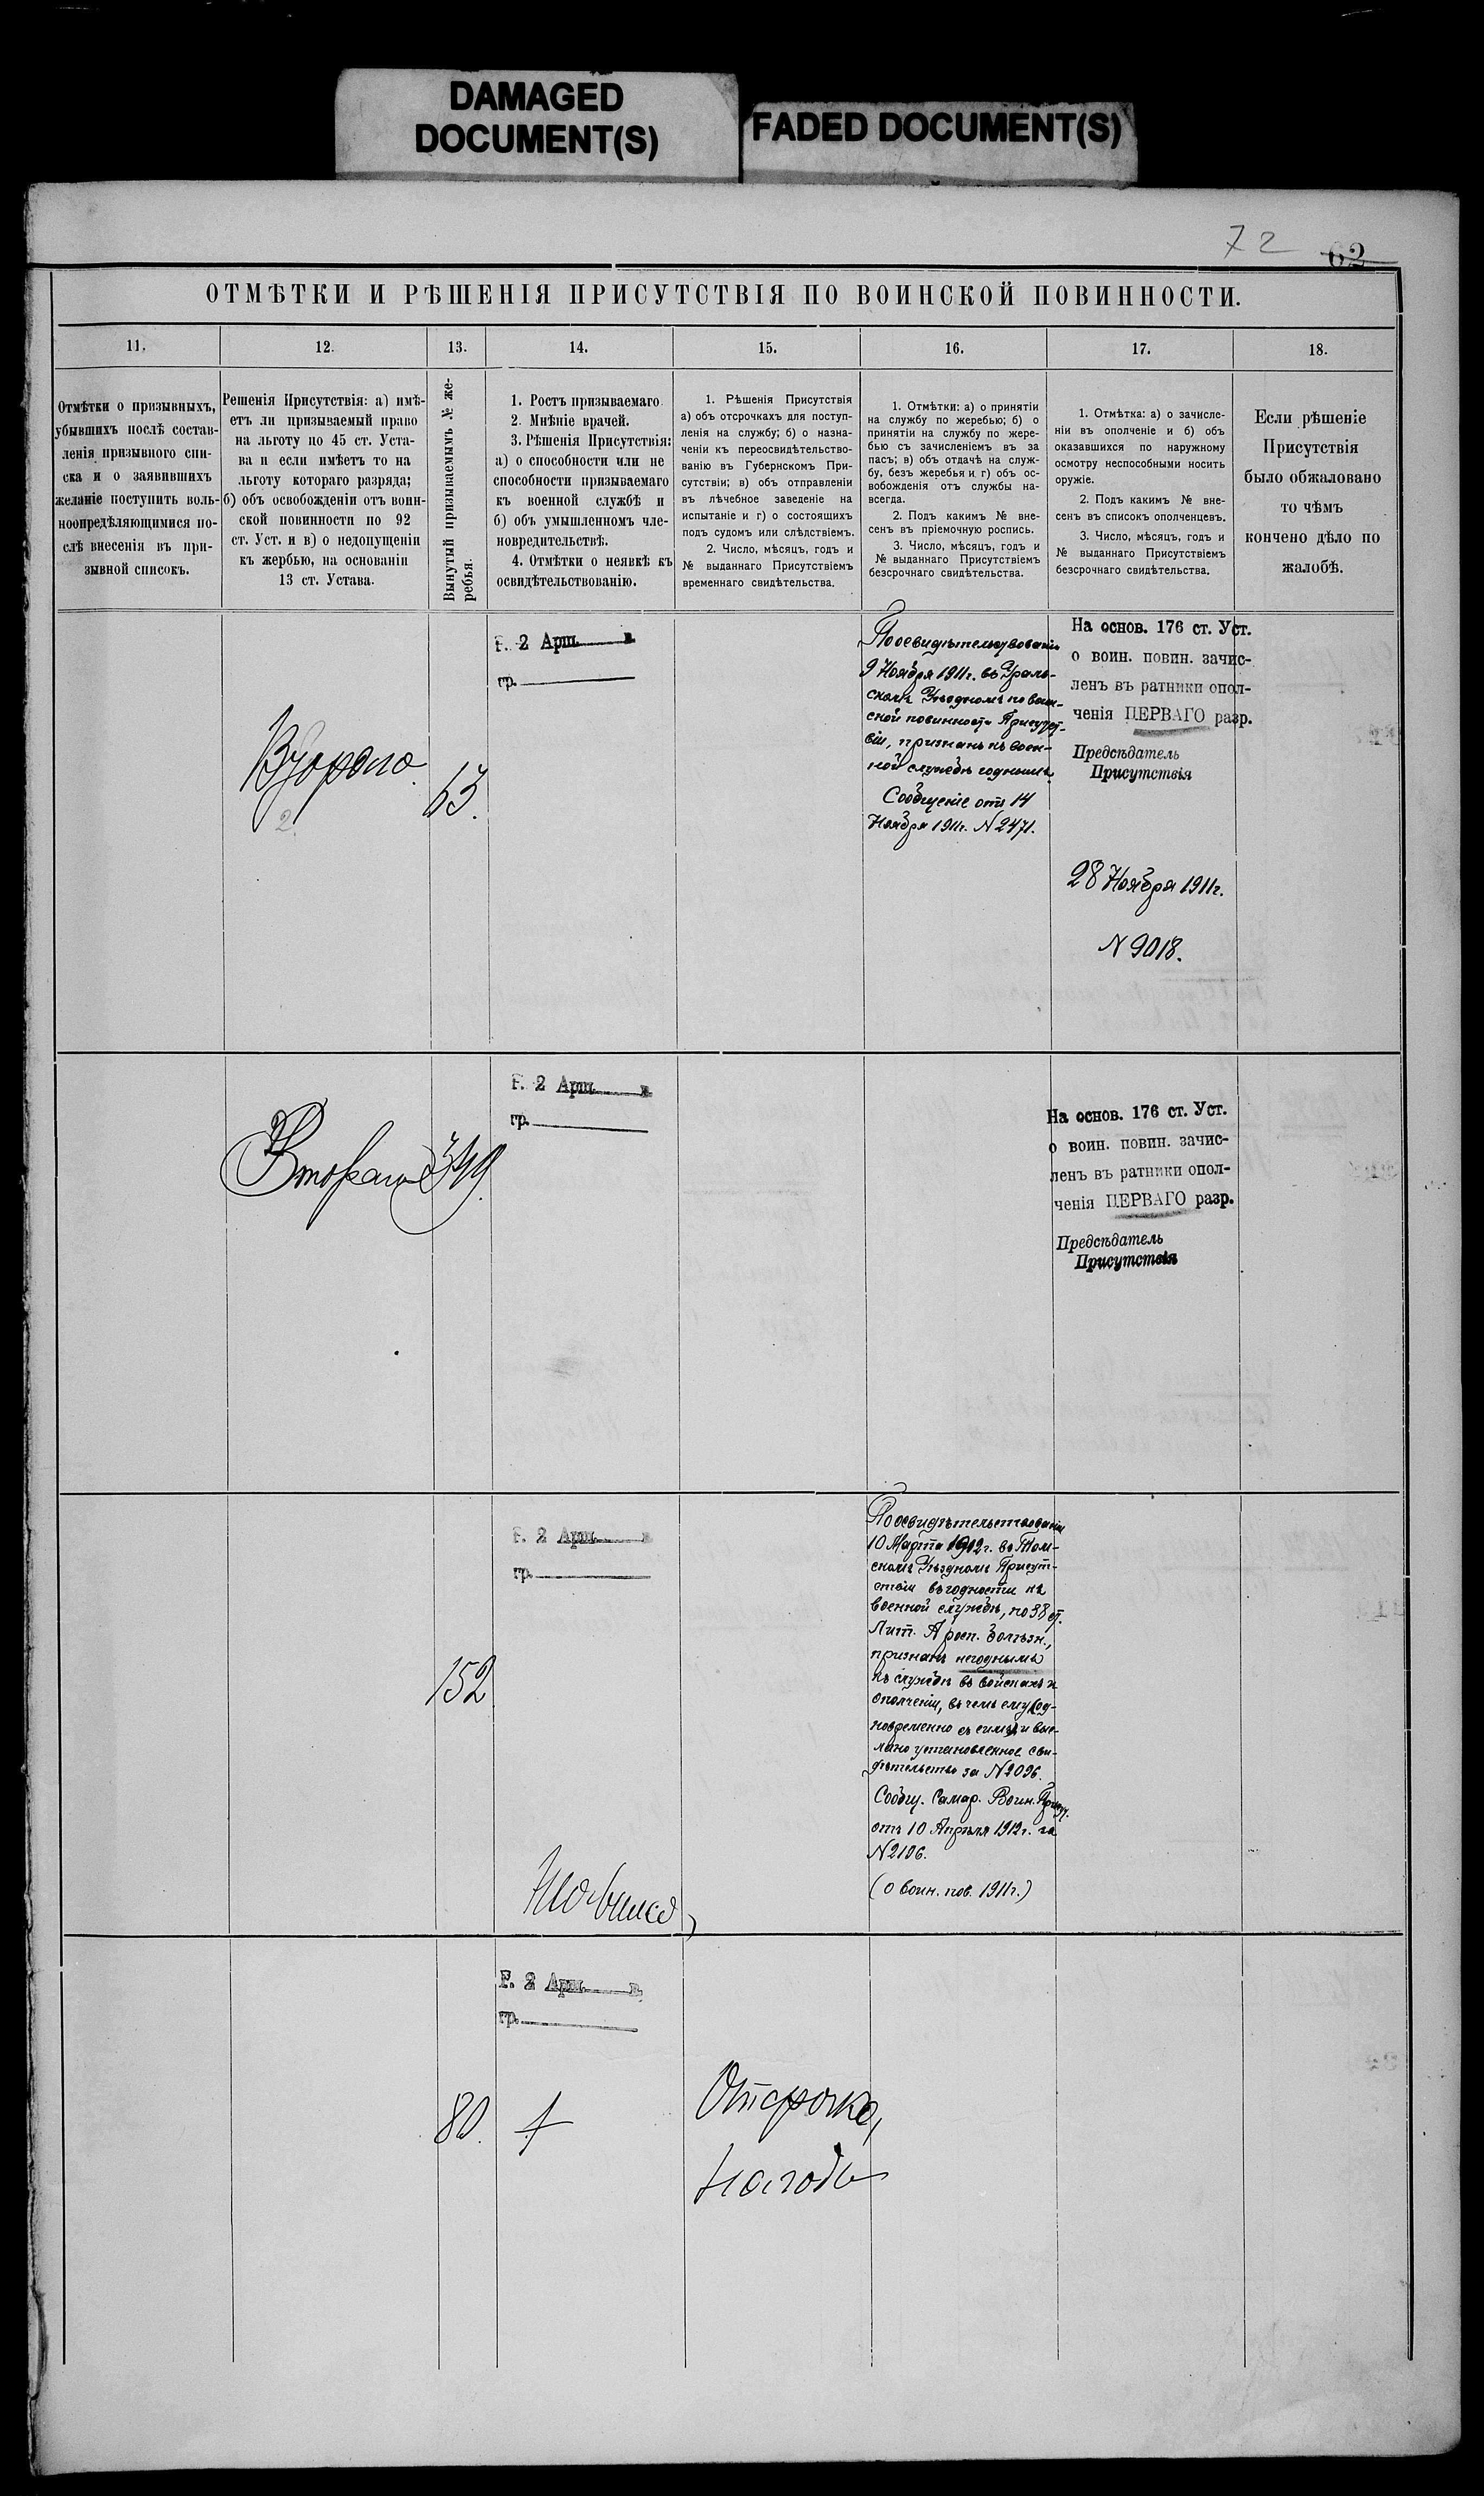 DAMAGED
DOCUMENT(S)
FADED DOCUMENT(S)
72 62
ОТМѢТКИ И РѢШЕНІЯ ПРИСУТСТВІЯ ПО ВОИНСКОЙ ПОВИННОСТИ.
11.
12.
13.
14.
15.
16.
17.
18.
Отмѣтки о призывныхъ,
убывшихъ послѣ состав-
ленія призывного спи-
ска и о заявившихъ
желаніе поступить воль-
ноопредѣляющимися по-
слѣ внесенія въ при-
зывной списокъ.
Решенія Присутствія: а) имѣ-
етъ ли призываемый право
на льготу по 45 ст. Уста-
ва и если имѣетъ то на
льготу котораго разряда;
б) объ освобожденіи отъ воин-
ской повинности по 92
ст. Уст. и в) о недопущеніи
къ жербью, на основаніи
13 ст. Устава.
Вынутый призываемымъ № же-
ребья.
1. Ростъ призываемаго
2. Мнѣніе врачей.
3. Рѣшенія Присутствія:
а) о способности или не
способности призываемаго
къ военной службѣ и
б) объ умышленномъ чле-
новредительствѣ.
4. Отмѣтки о неявкѣ къ
освидѣтельствованію.
1. Рѣшенія Присутствія
а) объ отсрочкахъ для поступ-
ленія на службу; б) о назна-
ченіи къ переосвидѣтельство-
ванію въ Губернскомъ При-
сутствіи; в) объ отправленіи
въ лѣчебное заведеніе на
испытаніе и г) о состоящихъ
подъ судомъ или слѣдствіемъ.
2. Число, мѣсяцъ, годъ и
№ выданнаго Присутствіемъ
временнаго свидѣтельства.
1. Отмѣтки: а) о принятіи
на службу по жеребью; б) о
принятіи на службу по жере-
бью съ зачисленіемъ въ за
пасъ; в) объ отдачѣ на служ-
бу, безъ жеребья и г) объ ос-
вобожденія отъ службы на-
всегда.
2. Подъ какимъ № вне-
сенъ въ пріемочную роспись.
3. Число, мѣсяцъ, годъ и
№ выданнаго Присутствіемъ
безсрочнаго свидѣтельства.
1. Отмѣтка: а) о зачисле-
ніи въ ополченіе и б) объ
оказавшихся по наружному
осмотру неспособными носить
оружіе.
2. Подъ какимъ № вне-
сенъ въ списокъ ополченцевъ.
3. Число, мѣсяцъ, годъ и
№ выданнаго Присутствіемъ
безсрочнаго свидѣтельства.
Если рѣшеніе
Присутствія
было обжаловано
то чѣмъ
кончено дѣло по
жалобѣ.
2
63.
Г. 2 Арш. в.
гр.
По освидѣтельствованіи
9 Ноября 1911г. въ Ураль-
скомъ Уѣздномъ по воин-
ской повинности Присутст-
віи, признанъ къ воен-
ной службѣ годнымъ.
Сообщеніе отъ 14
Ноября 1911г. N 2471.
На основ. 176 ст. Уст.
о воин. повин. зачис-
ленъ въ ратники опол-
ченія ПЕРВАГО разр.
Предсѣдатель
Присутствія
28 Ноября 1911г.
N 9018.
349.
Г. 2 Арш. в.
гр.
На основ. 176 ст. Уст.
о воин. повин. зачис-
ленъ въ ратники опол-
ченія ПЕРВАГО разр.
Предсѣдатель
Присутствія
152
Г. 2 Арш. в.
гр.
По освидѣтельствованіи
10 Марта 1912г. въ Том-
скомъ Уѣздномъ Присут-
ствіи въ годности къ
военной службѣ, по 38 ст.
Лит. А росп. болѣзн.,
признанъ негоднымъ
къ службѣ въ войскахъ и
ополченіи, въ чемъ ему од-
новременно съ симъ и выс-
лано установленное сви-
дѣтельство за N 2096.
Сообщ. Самар. Воин. Присут.
отъ 10 Апрѣля 1912г. за
N 2106.
(о воин. пов. 1911г.)
80.
Г. 2 Арш. в.
гр.
Отсрочка,
на годъ